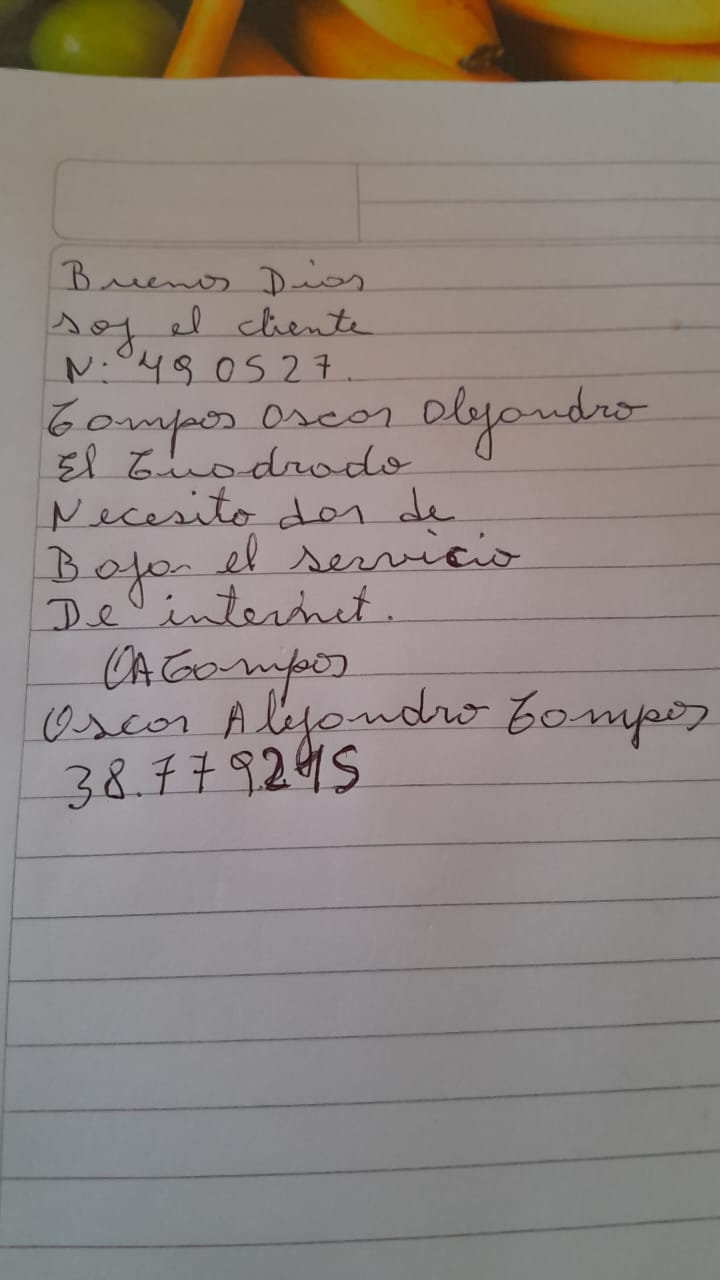 Buenos Dias
soy el cliente
N: 490527.
Campos Oscar Alejandro
El Cuadrado
Necesito dar de
Baja el servicio
De internet.
OACampos
Oscar Alejandro Campos
38.779245